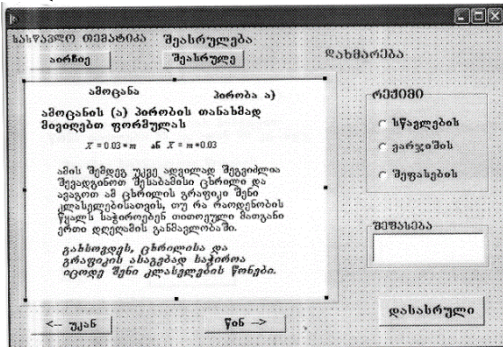 სასწავლო თემატიკა შეასრულება
აირჩიე შეასრულე დახმარება
ამოცანა პირობა ა)
ამოცანის (ა) პირობის თანახმად
მივიღებთ ფორმულას
X = 0.03 * m ან X = m*0.03
ამის შემდეგ უკვე ადვილად შეგვიძლია
შევადგინოთ შესაბამისი ცხრილი და
ავაგოთ ამ ცხრილის გრაფიკი შენი
კლასელებისათვის, თუ რა რაოდენობის
წყალს საჭიროებენ თითოეული მათგანი
ერთი დღეღამის განმავლობაში.
გახსოვდეს, ცხრილისა და
გრაფიკის ასაგებად საჭიროა
იცოდე შენი კლასელების წონები.
რეჟიმი
სწავლების
ვარჯიშის
შეფასების
შეფასება
<-- უკან წინ -->
დასასრული